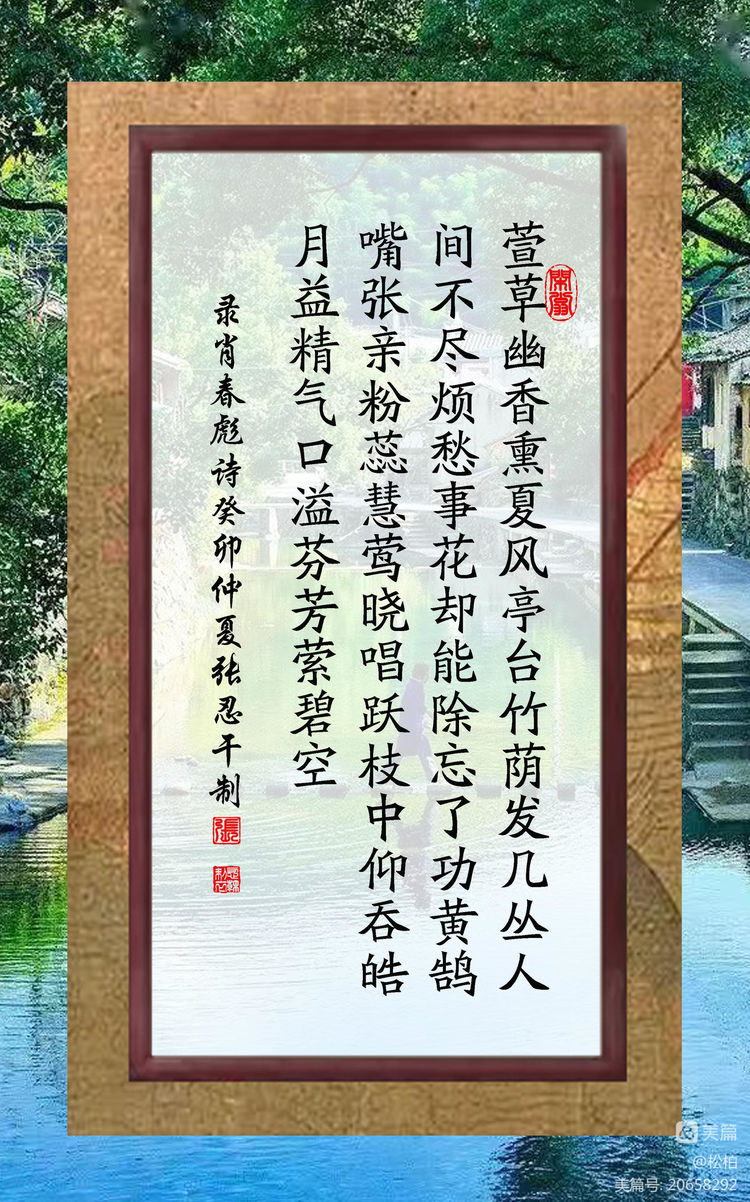 萱草幽香熏夏风亭台竹荫发几丛人
间不尽烦愁事花却能除忘了功黄鹄
嘴张亲粉蕊慧莺晓唱跃枝中仰吞皓
月益精气口溢芬芳萦碧空
录肖春彪诗癸卯仲夏张忍干制
張
美篇
@松柏
美篇号: 20658292